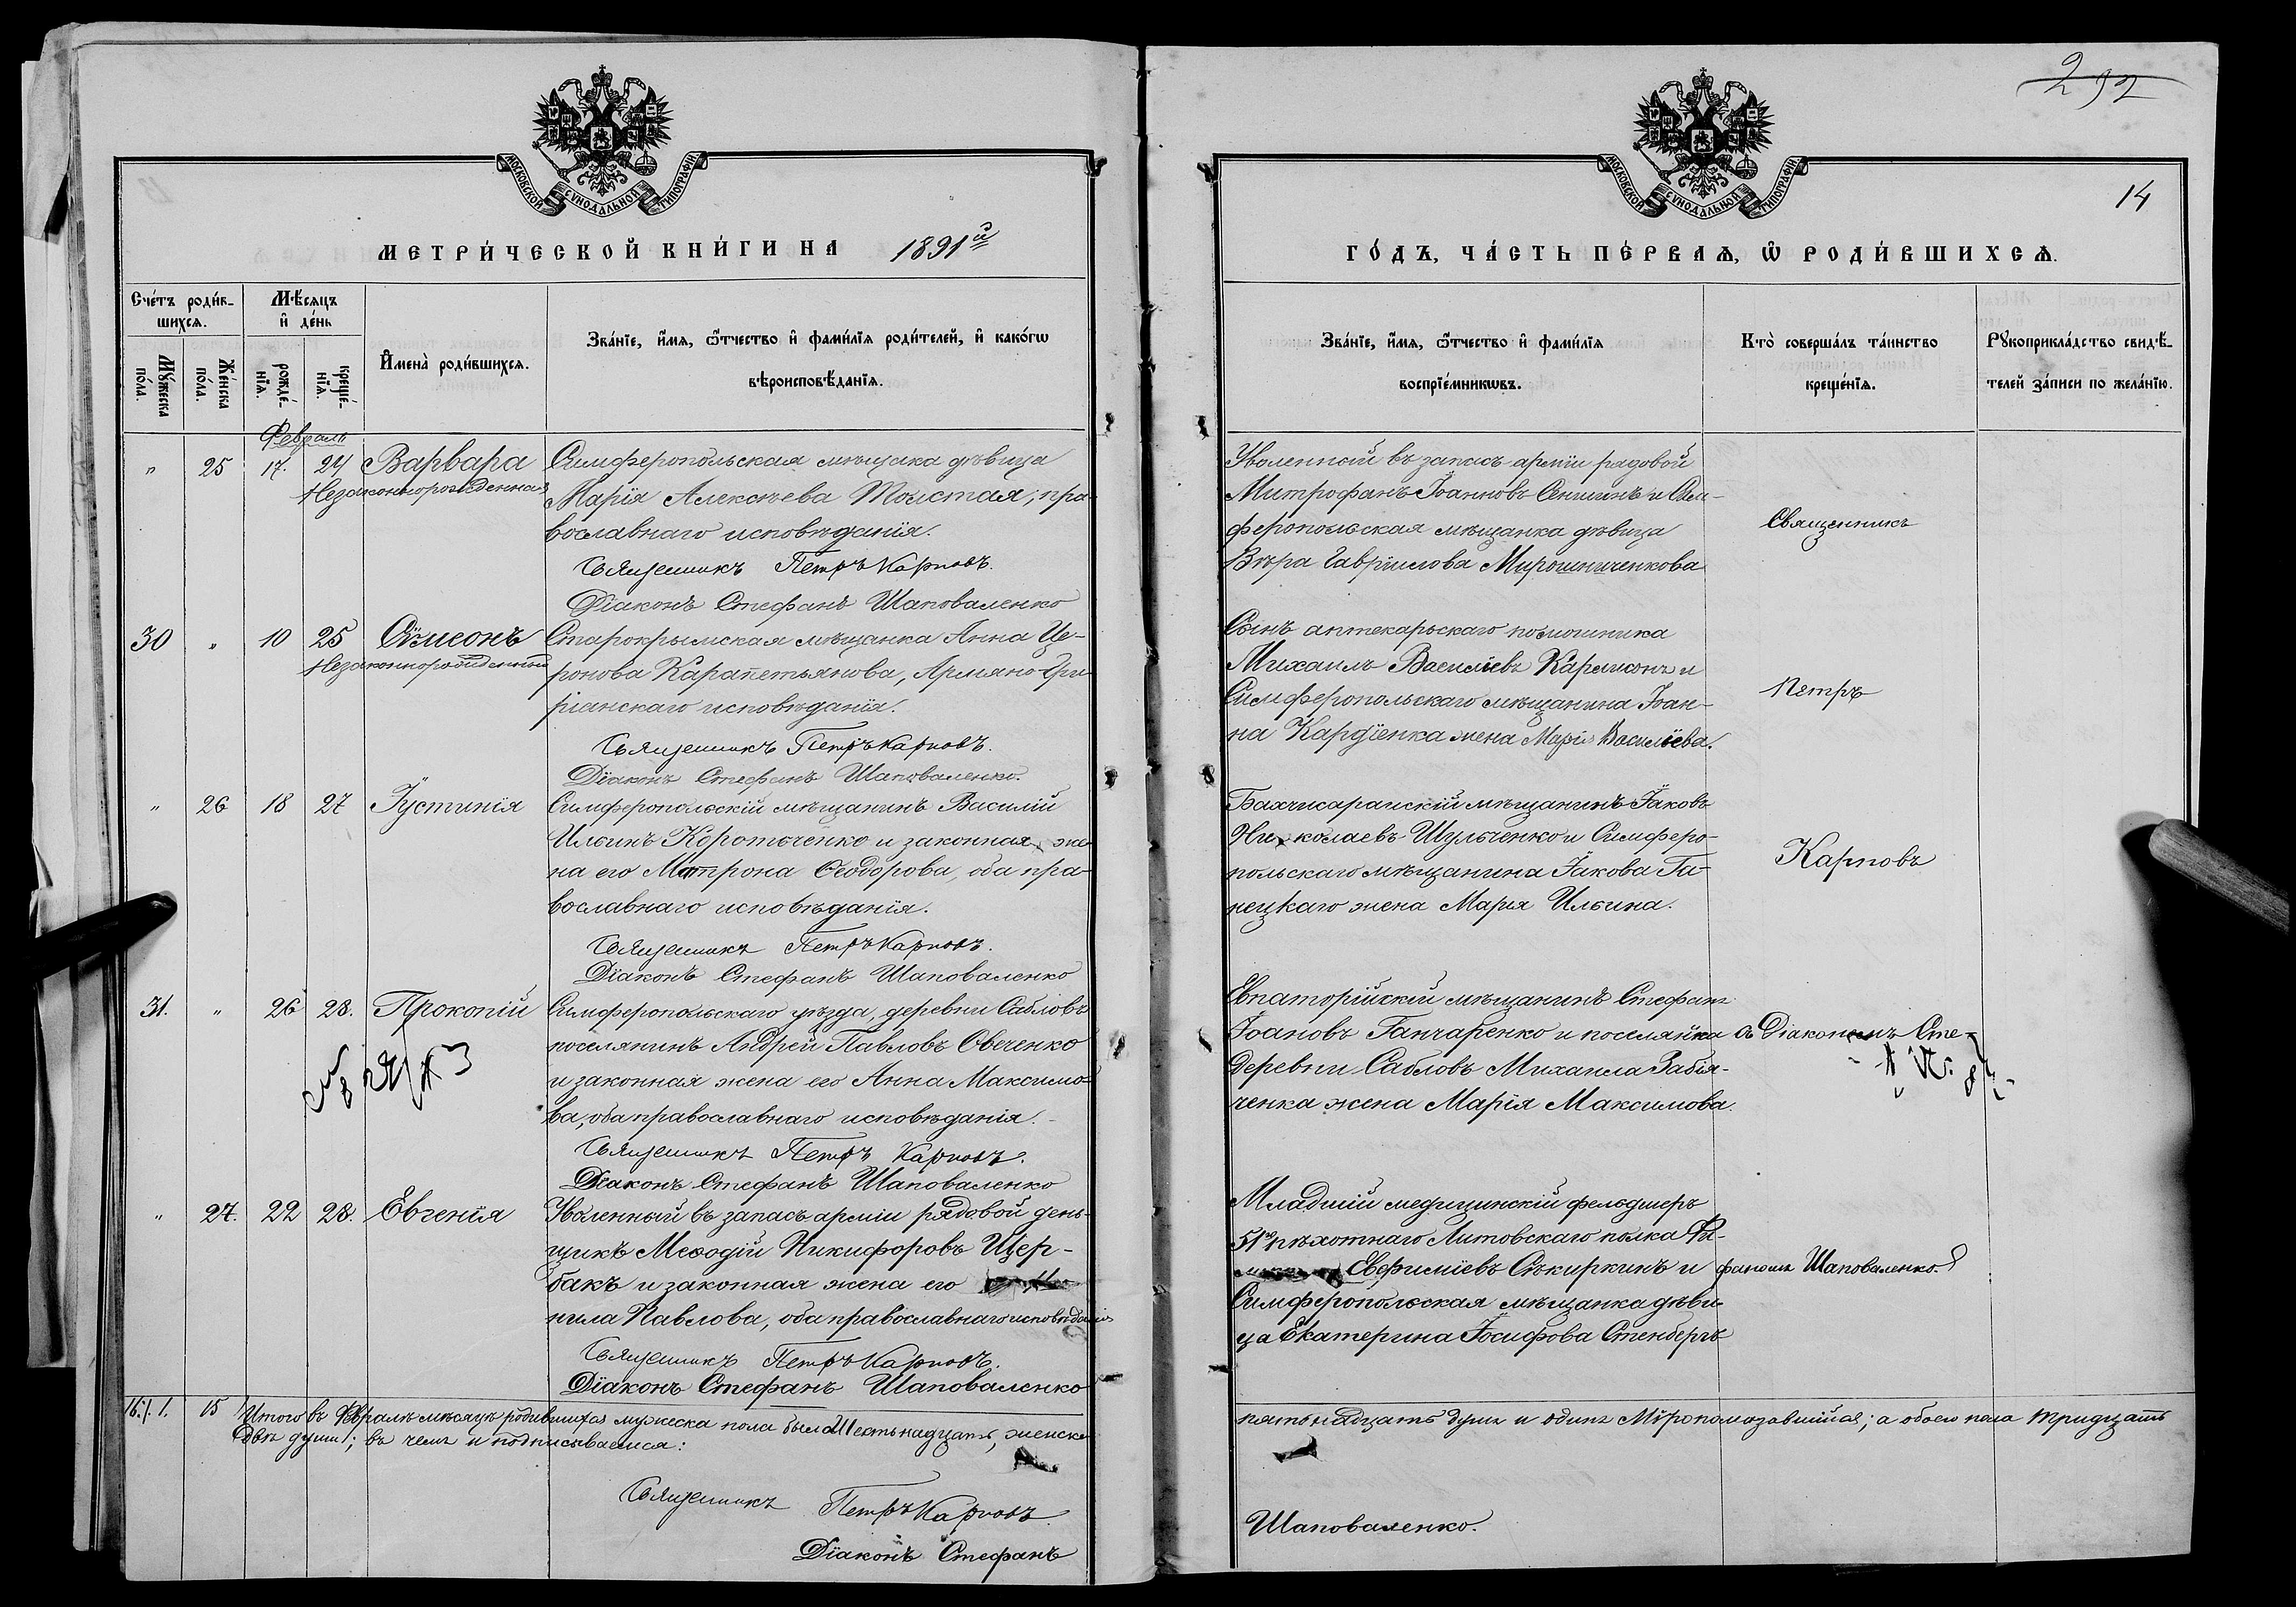 292
14
МОСКОВСКОЙ СѴНОДАЛЬНОЙ ТИПОГРАФІИ
МОСКОВСКОЙ СѴНОДАЛЬНОЙ ТИПОГРАФІИ
МЕТРИ́ЧЕСКОЙ КНИ́ГИ НА 1891й
ГО́ДЪ, ЧА́СТЬ ПЕ́РВАѦ, Ѽ РОДИ́ВШИХСѦ.
Сче́тъ роди́в-
шихсѧ.
Мѣ́сѧцъ
и҆ де́нь
Мꙋ́жеска по́ла.
Же́нска по́ла.
рожде́-
нїѧ.
креще́-
нїѧ.
И҆мена̀ роди́вшихсѧ.
Зва́нїе, и҆́мѧ, ѻ҆́тчество и҆ фами́лїѧ роди́телей, и҆ како́гѡ
вѣроисповѣ́данїѧ.
Зва́нїе, и҆́мѧ, ѻ҆́тчество и҆ фами́лїѧ
воспрїе́мникѡвъ.
Кто̀ соверша́лъ та́инство
креще́нїѧ.
Рꙋкоприкла́дство свидѣ́-
телей за́писи по жела́нїю.
Февраль
" 25 17. 24 Варвара
Незаконнорожденная
Симферопольская мѣщанка дѣвица
Марія Алексѣева Толстая; пра-
вославнаго исповѣданія.
Священникъ Петръ Карповъ.
Діаконъ Стефанъ Шаповаленко
Уволенный въ запасъ арміи рядовой
Митрофанъ Іоанновъ и Сим-
феропольская мѣщанка дѣвица
Вѣра Гавріилова Мирошниченкова
Священникъ
30 " 10 25 Сѷмеонъ
Незаконнорожденный
Старокрымская мѣщанка Анна Це-
ронова Карапетьянова, Армяно-Гри-
ріанскаго исповѣданія.
Священникъ Петръ Карповъ.
Діаконъ Стефанъ Шаповаленко.
Сынъ аптекарьскаго помошника
Михаилъ Василіевъ и
Симферопольскаго мѣщанина Іоан-
на Кардіенка жена Марія Василіева.
Петръ
" 26 18 27 Іустинія
Симферопольскій мѣщанинъ Василій
Ильинъ Коротченко и законная же-
на его Матрона Ѳеодорова, оба пра-
вославнаго исповѣданія.
Священникъ Петръ Карповъ.
Діаконъ Стефанъ Шаповаленко
Бахчисарайскій мѣщанинъ Іаковъ
Николаевъ Шульченко и Симферо-
польскаго мѣщанина Іакова Га-
нецкаго жена Мария Ильина.
Карповъ
31. " 26 28. Прокопій
Симферопольскаго уѣзда, деревни Сабловъ
поселянинъ Андрей Павловъ Овченко
и законная жена его Анна Максимо-
ва, оба православнаго исповѣданія.
Священникъ Петръ Карповъ.
Діаконъ Стефанъ Шаповаленко
Евпаторійскій мѣщанинъ Стефанъ
Іоановъ Ганчаренко и поселянка
деревни Сабловъ Михаила Забія-
ченка жена Марія Максимова.
съ Діакономъ Сте-
" 27. 22 28. Евгенія
Уволенный въ запасъ арміи рядовой день-
щикъ Меѳодій Никифоровъ Щер-
бакъ и законная жена его
нила Павлова, оба православнаго исповѣданія
Священникъ Петръ Карповъ.
Діаконъ Стефанъ Шаповаленко
Младшій медицинскій фельдшеръ
51го пѣхотнаго Литовскаго полка
Евфиміевъ Сѣкиркинъ и
Симферопольская мѣщанка дѣви-
ца Екатерина Іосифова Стенбергъ
фаномъ Шаповаленко.
16./.1. 15 Итого въ Февралѣ мѣсяцѣ родившихся мужеска пола было Шестьнадцать, женска
пятьнадцать душъ и одинъ Мѵропомазавшійся; а обоего пола тридцать
двѣ души; въ чемъ и подписываемся:
Священникъ Петръ Карповъ.
Діаконъ Стефанъ
Шаповаленко.